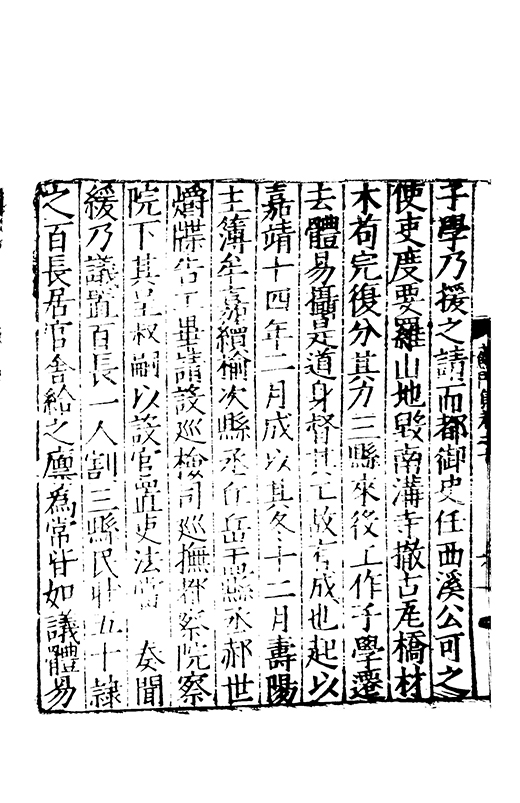 子學乃援之請而都御史任西溪公可之
使吏度要羅山地毀南溝寺撤古尾橋材
木苟完復分其力三縣來役工作子學遷
去體易攝是道身督其亡故有成也起以
嘉靖十四年二月成以其冬十二月壽陽
主簿牟嘉續榆次縣丞丘岳盂縣丞郝世
爵牒告工畢請設巡檢司巡撫都察院察
院下其呈叔嗣以設官置吏法當 奏聞
緩乃議置百長一人割三縣民壯五十隸
之百長居官舍給之廪為常皆如議體易
蘇門集卷